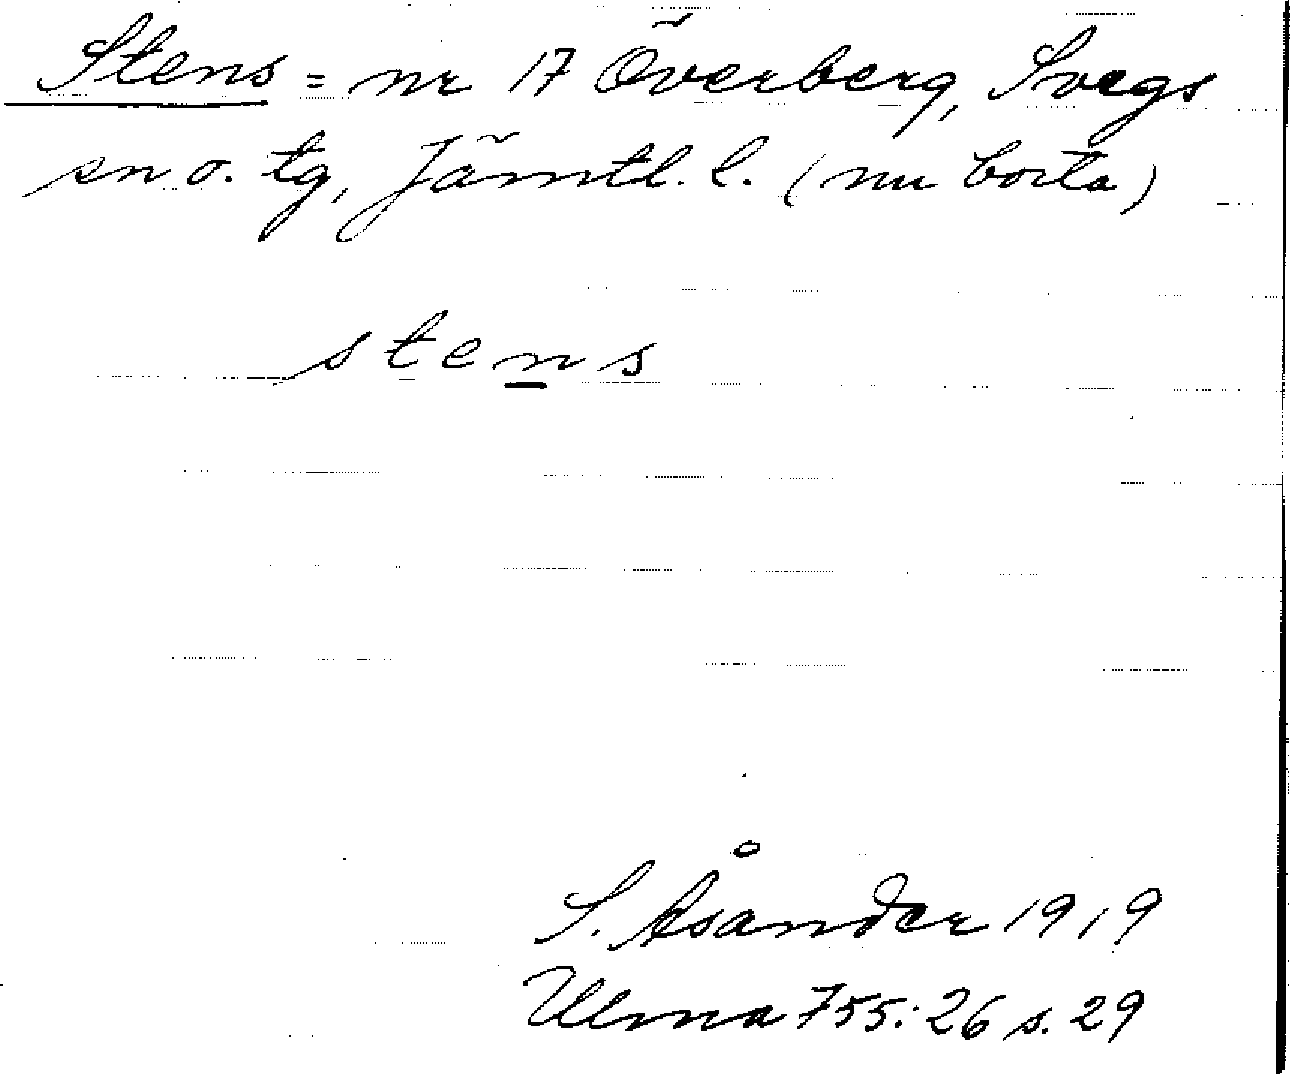 Stens = nr 17 Överberg, Svegs
sn o. tg, Jämtl. l. (nu borta)
stens
S. Åsander 1919
Ulma 755:26 s. 29